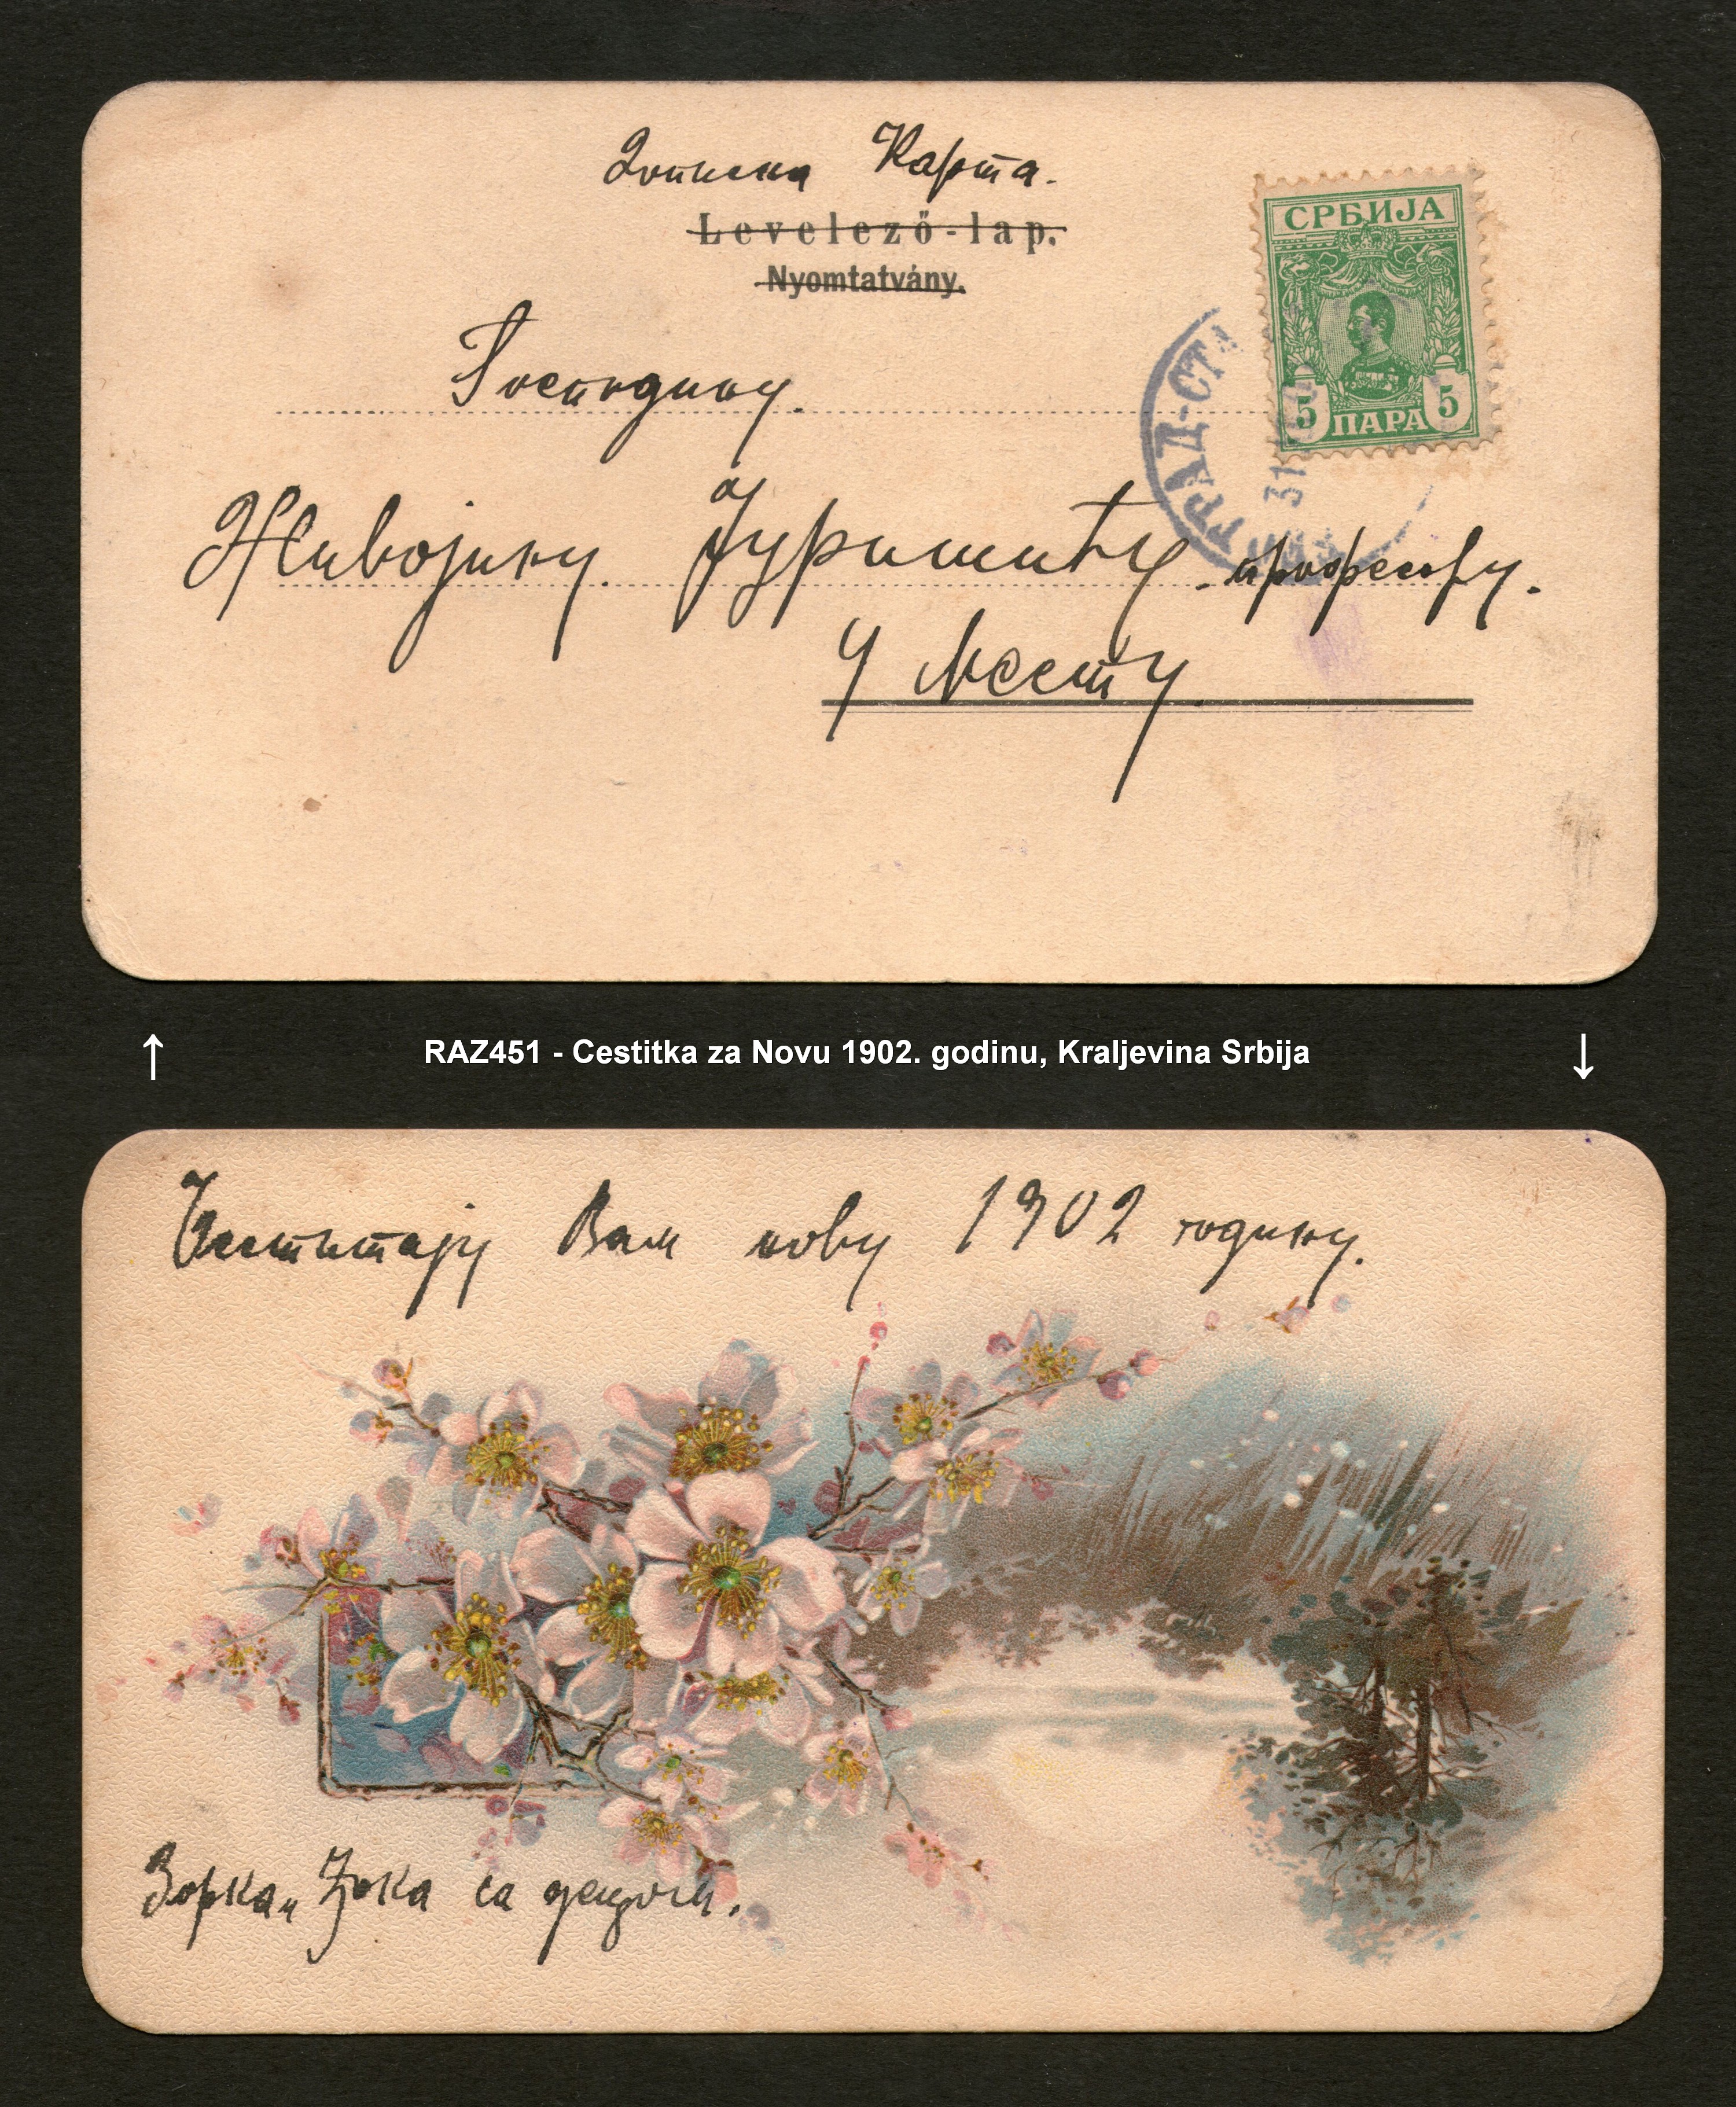 Дописна Карта.
Levelező-lap.
Nyomtatvány.
СРБИЈА
5 ПАРА 5
ГРАД-СТА
31
Господину.
Живојину. Јуришићу. професору.
У Месту
↑ RAZ451 - Cestitka za Novu 1902. godinu, Kraljevina Srbija ↓
Честитају Вам нову 1902 годину.
Зорка и Ђока са децом.